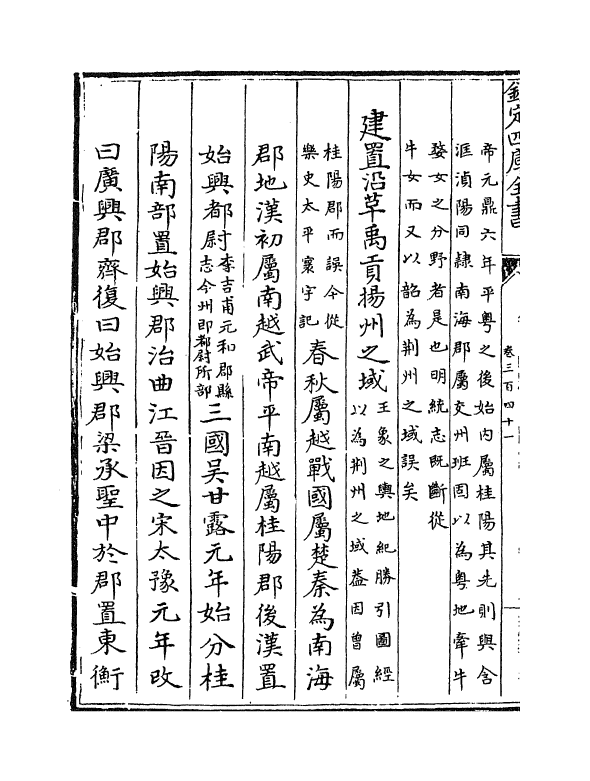 欽定四庫全書
卷三百四十一
帝元鼎六年平粵之後始内屬桂陽其先則與含
洭湞陽同隸南海郡屬交州班固以為粵地牽牛
婺女之分野者是也明統志既斷從
牛女而又以韶為荆州之域誤矣
建置沿革禹貢揚州之域王象之輿地紀勝引圖經
以為荆州之域葢因曾屬
桂陽郡而誤今從
樂史太平寰宇記春秋屬越戰國屬楚秦為南海
郡地漢初屬南越武帝平南越屬桂陽郡後漢置
始興都尉李吉甫元和郡縣
志今州即都尉所部三國吳甘露元年始分桂
陽南部置始興郡治曲江晉因之宋太豫元年改
曰廣興郡齊復曰始興郡梁承聖中於郡置東衡